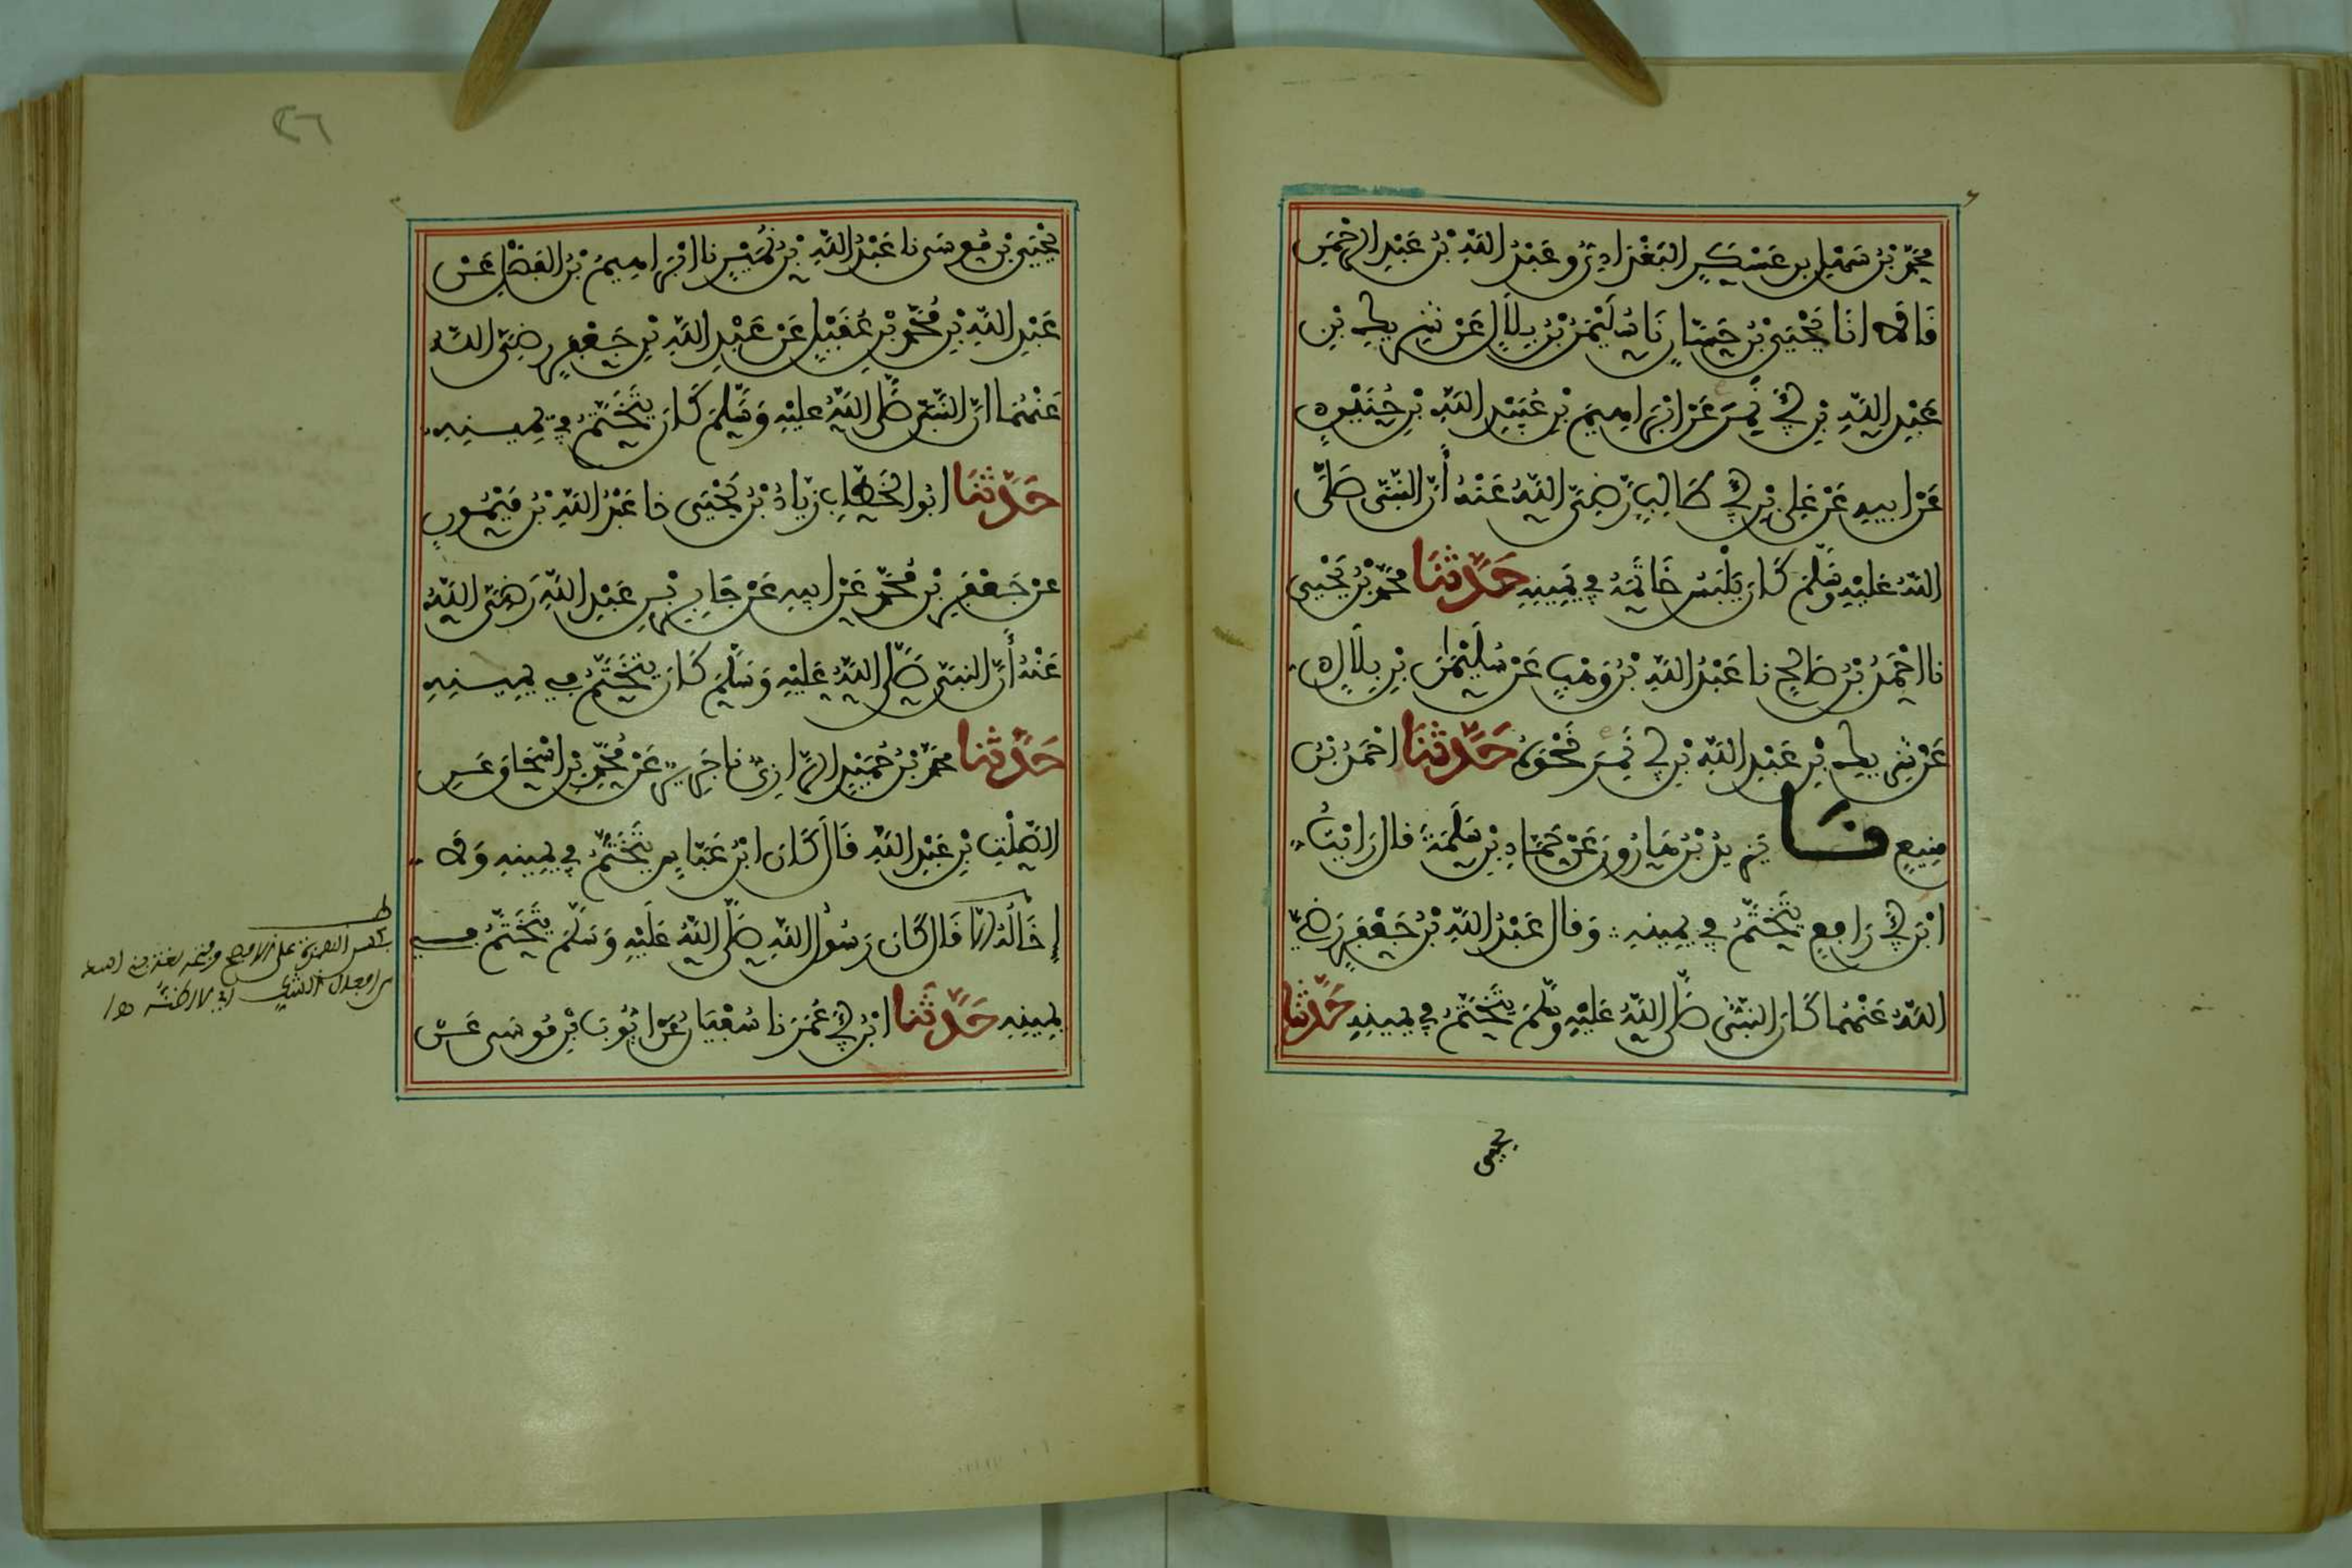 مُحَمَّدُ بْنُ سَهْلِ بنِ عَسْكَرٍ البَغْدَادِيُّ وعَبْدُ اللَّهِ بْنُ عَبْدِ الرحْمَنِ
قَالَا انَا يَحْيَى بْنُ حَسَّانَ نَا سُلَيْمَنُ بْنُ بِلَالٍ عَنْ شَرِيكِ بْنِ
عَبْدِ اللَّهِ بْنِ أَبِي نَمِرٍ عَنْ ابْرَاهِيمَ بْنِ عُبَيْدِ اللَّهِ بْنِ حُنَيْنٍ
عَنْ ابيهِ عَنْ عَلِي بْنِ أَبِي طَالِبٍ رَّضِيَ اللَّهُ عَنْهُ أَنَّ النَّبِيّ صَلَّى
اللَّهُ عَلَيْهِ وَسَلَّمَ كَانَ يَلْبَسُ خَاتَمَهُ فِي يَمِينِهِ حَدَّثَنَا مُحَمَّدُ بْنُ يَحْيَى
نا احْمَدُ بْنُ صَالِحٍ نا عَبْدُ اللَّهِ بْنُ وَهْبٍ عَنْ سُلَيْمَنَ بْنِ بِلَالٍ
عَنْ شَرِيكِ بْنِ عَبْدِ اللَّهِ بْنِ أَبِي نَمِرٍ نَحْوَهُ حَدَّثَنَا احْمَدُ بْنُ
مَنِيعٍ نَا يَزِيدُ بْنُ هَارُونَ عَنْ حَمَّادِ بْنِ سَلَمَةَ قال رَايْتُ
ابْنَ أَبِي رَافِعٍ يَتَخَتَّمُ فِي يَمِينِهِ وَقال عَبْدُ اللَّهِ بْنُ جَعْفَرٍ رَضِيَ
اللَّهُ عَنْهُمَا كَانَ النَّبِيُّ صَلَّى اللَّهُ عَلَيْهِ وَسَلَّمَ يَتَخَتَّمُ فِي يَمِينِهِ حَدَّثَنَا
يحيى
٢٦
يَحْيَى بْنُ مُوسَى نا عَبْدُ اللَّهِ بْنُ نُمَيْرٍ نا ابْرَاهِيمُ بْنُ الفَضْلِ عَنْ
عَبْدِ اللَّهِ بْنِ مُحَمَّدِ بْنِ عُقَيْلٍ عَنْ عَبْدِ اللَّهِ بْنِ جَعْفَرٍ رضِيَ اللَّهُ
عَنْهُمَا انَّ النَّبِيّ صَلَّى اللَّهُ عليْهِ وَسَلَّمَ كَانَ يَتَخَتَّمُ فِي يَمِينِهِ
حَدَّثَنَا ابُو الخَطَّابِ زِيَادُ بْنُ يَحْيَى نا عَبْدُ اللَّهِ بْنُ مَيْمُونٍ
عن جَعْفَرِ بْنِ مُحَمَّدٍ عَنْ ابيهِ عَنْ جَابِرِ بْنِ عَبْدِ اللَّهِ رَضِيَ اللَّهُ
عَنْهُ أَنَّ النبيّ صَلَّى اللَّهُ عَلَيْهِ وَسَلَّمَ كَانَ يَتَخَتَّمُ فِي يَمِينِهِ
حَدَّثَنَا مُحَمَّدُ بْنُ حُمَيْدٍ الرَّازِيُّ نا جَرِيرٌ عَنْ مُحَمَّدِ بْنِ اسْحَاقَ عَنِ
الصَّلْتِ بْنِ عَبْدِ اللَّهِ قَالَ كَانَ ابْنُ عَبَّاسٍ يَتَخَتَّمُ فِي يَمِينِهِ وَلَا
إِخَالُهُ الَّا قَال كَانَ رَسُولُ اللَّهِ صَلَّى اللَّهُ عَلَيْهِ وَسَلَّمَ يَتَخَتَّمُ فِي
يَمِينِهِ حَدَّثَنَا ابْنُ أَبِي عُمَرَ نا سُفْيَانُ عَنْ ايُّوبَ بْنِ مُوسَى عَنْ